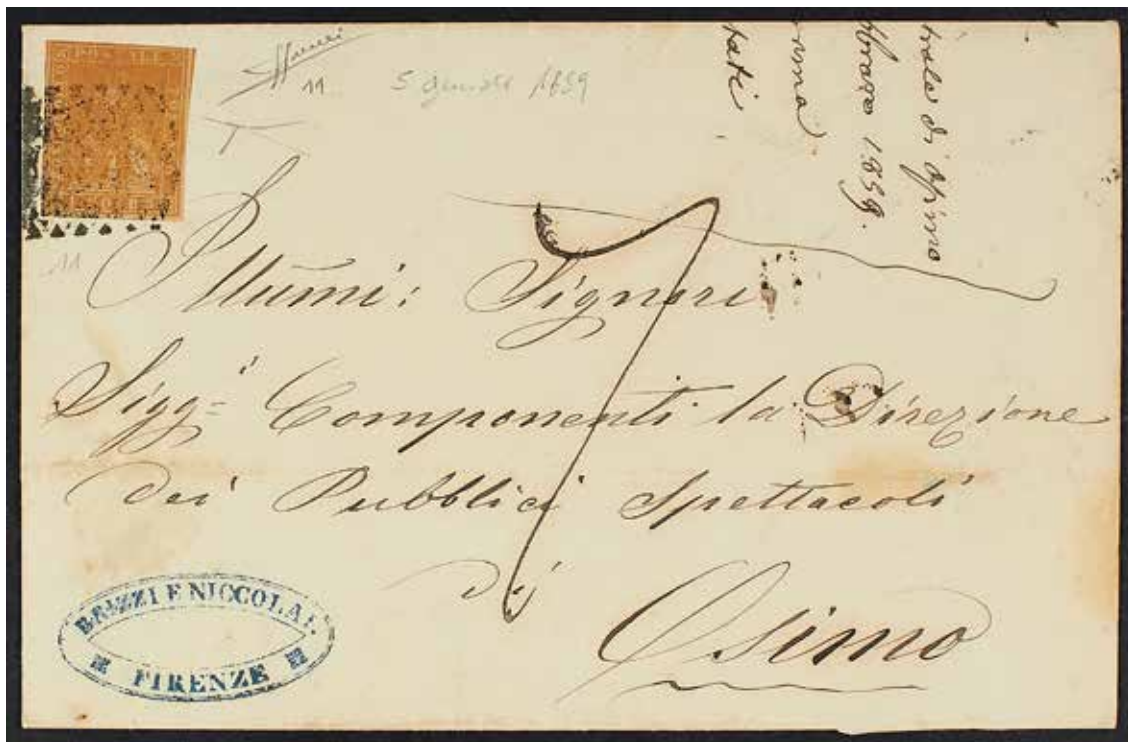 11
5 gennaio 1859
trale di Osimo
1859.
11
Illumi: Signori
Sigg=i Componenti la Direzione
dei Pubblici Spettacoli
di
Osimo
7
BRIZZI E NICCOLAI.
FIRENZE